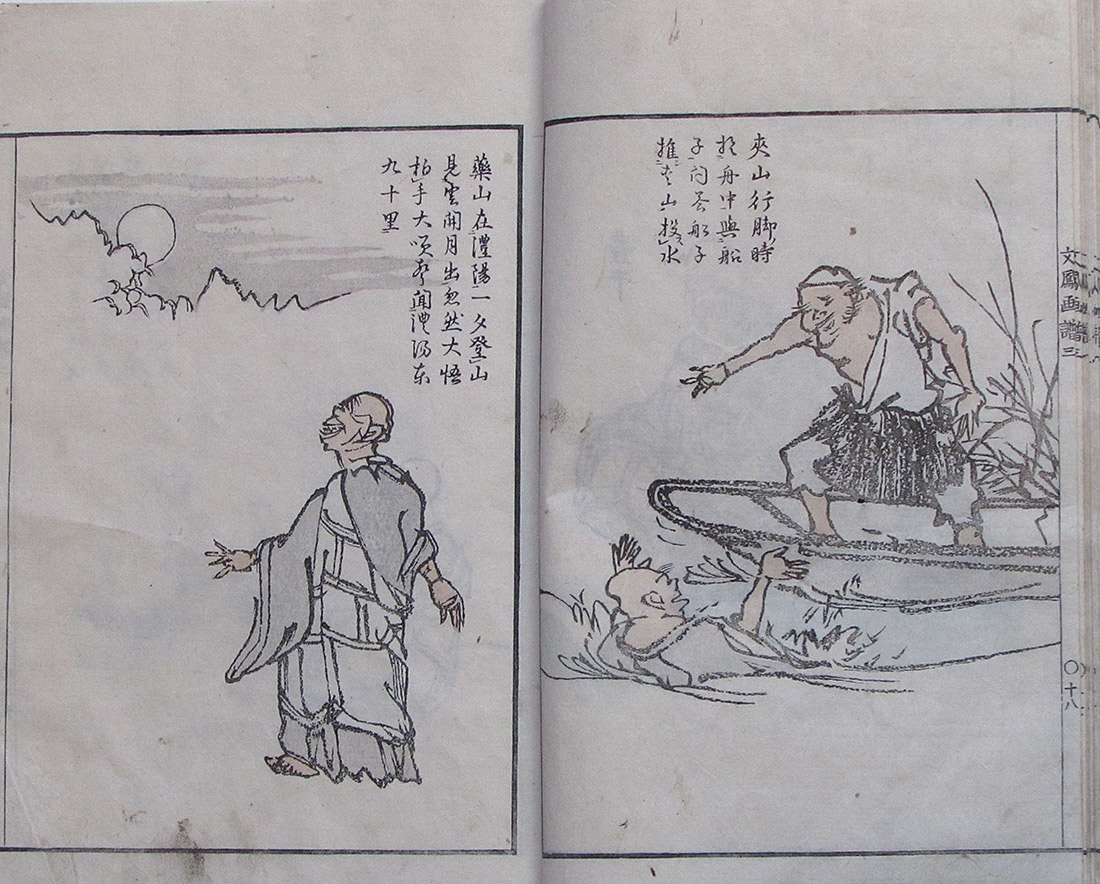 夾山行脚時
於舟中與船
子問答船子
推夾山投水
文鳳画譜三
〇十八
藥山在澧陽一夕登山
見雲開月出忽然大悟
拍手大咲聲聞澧陽東
九十里